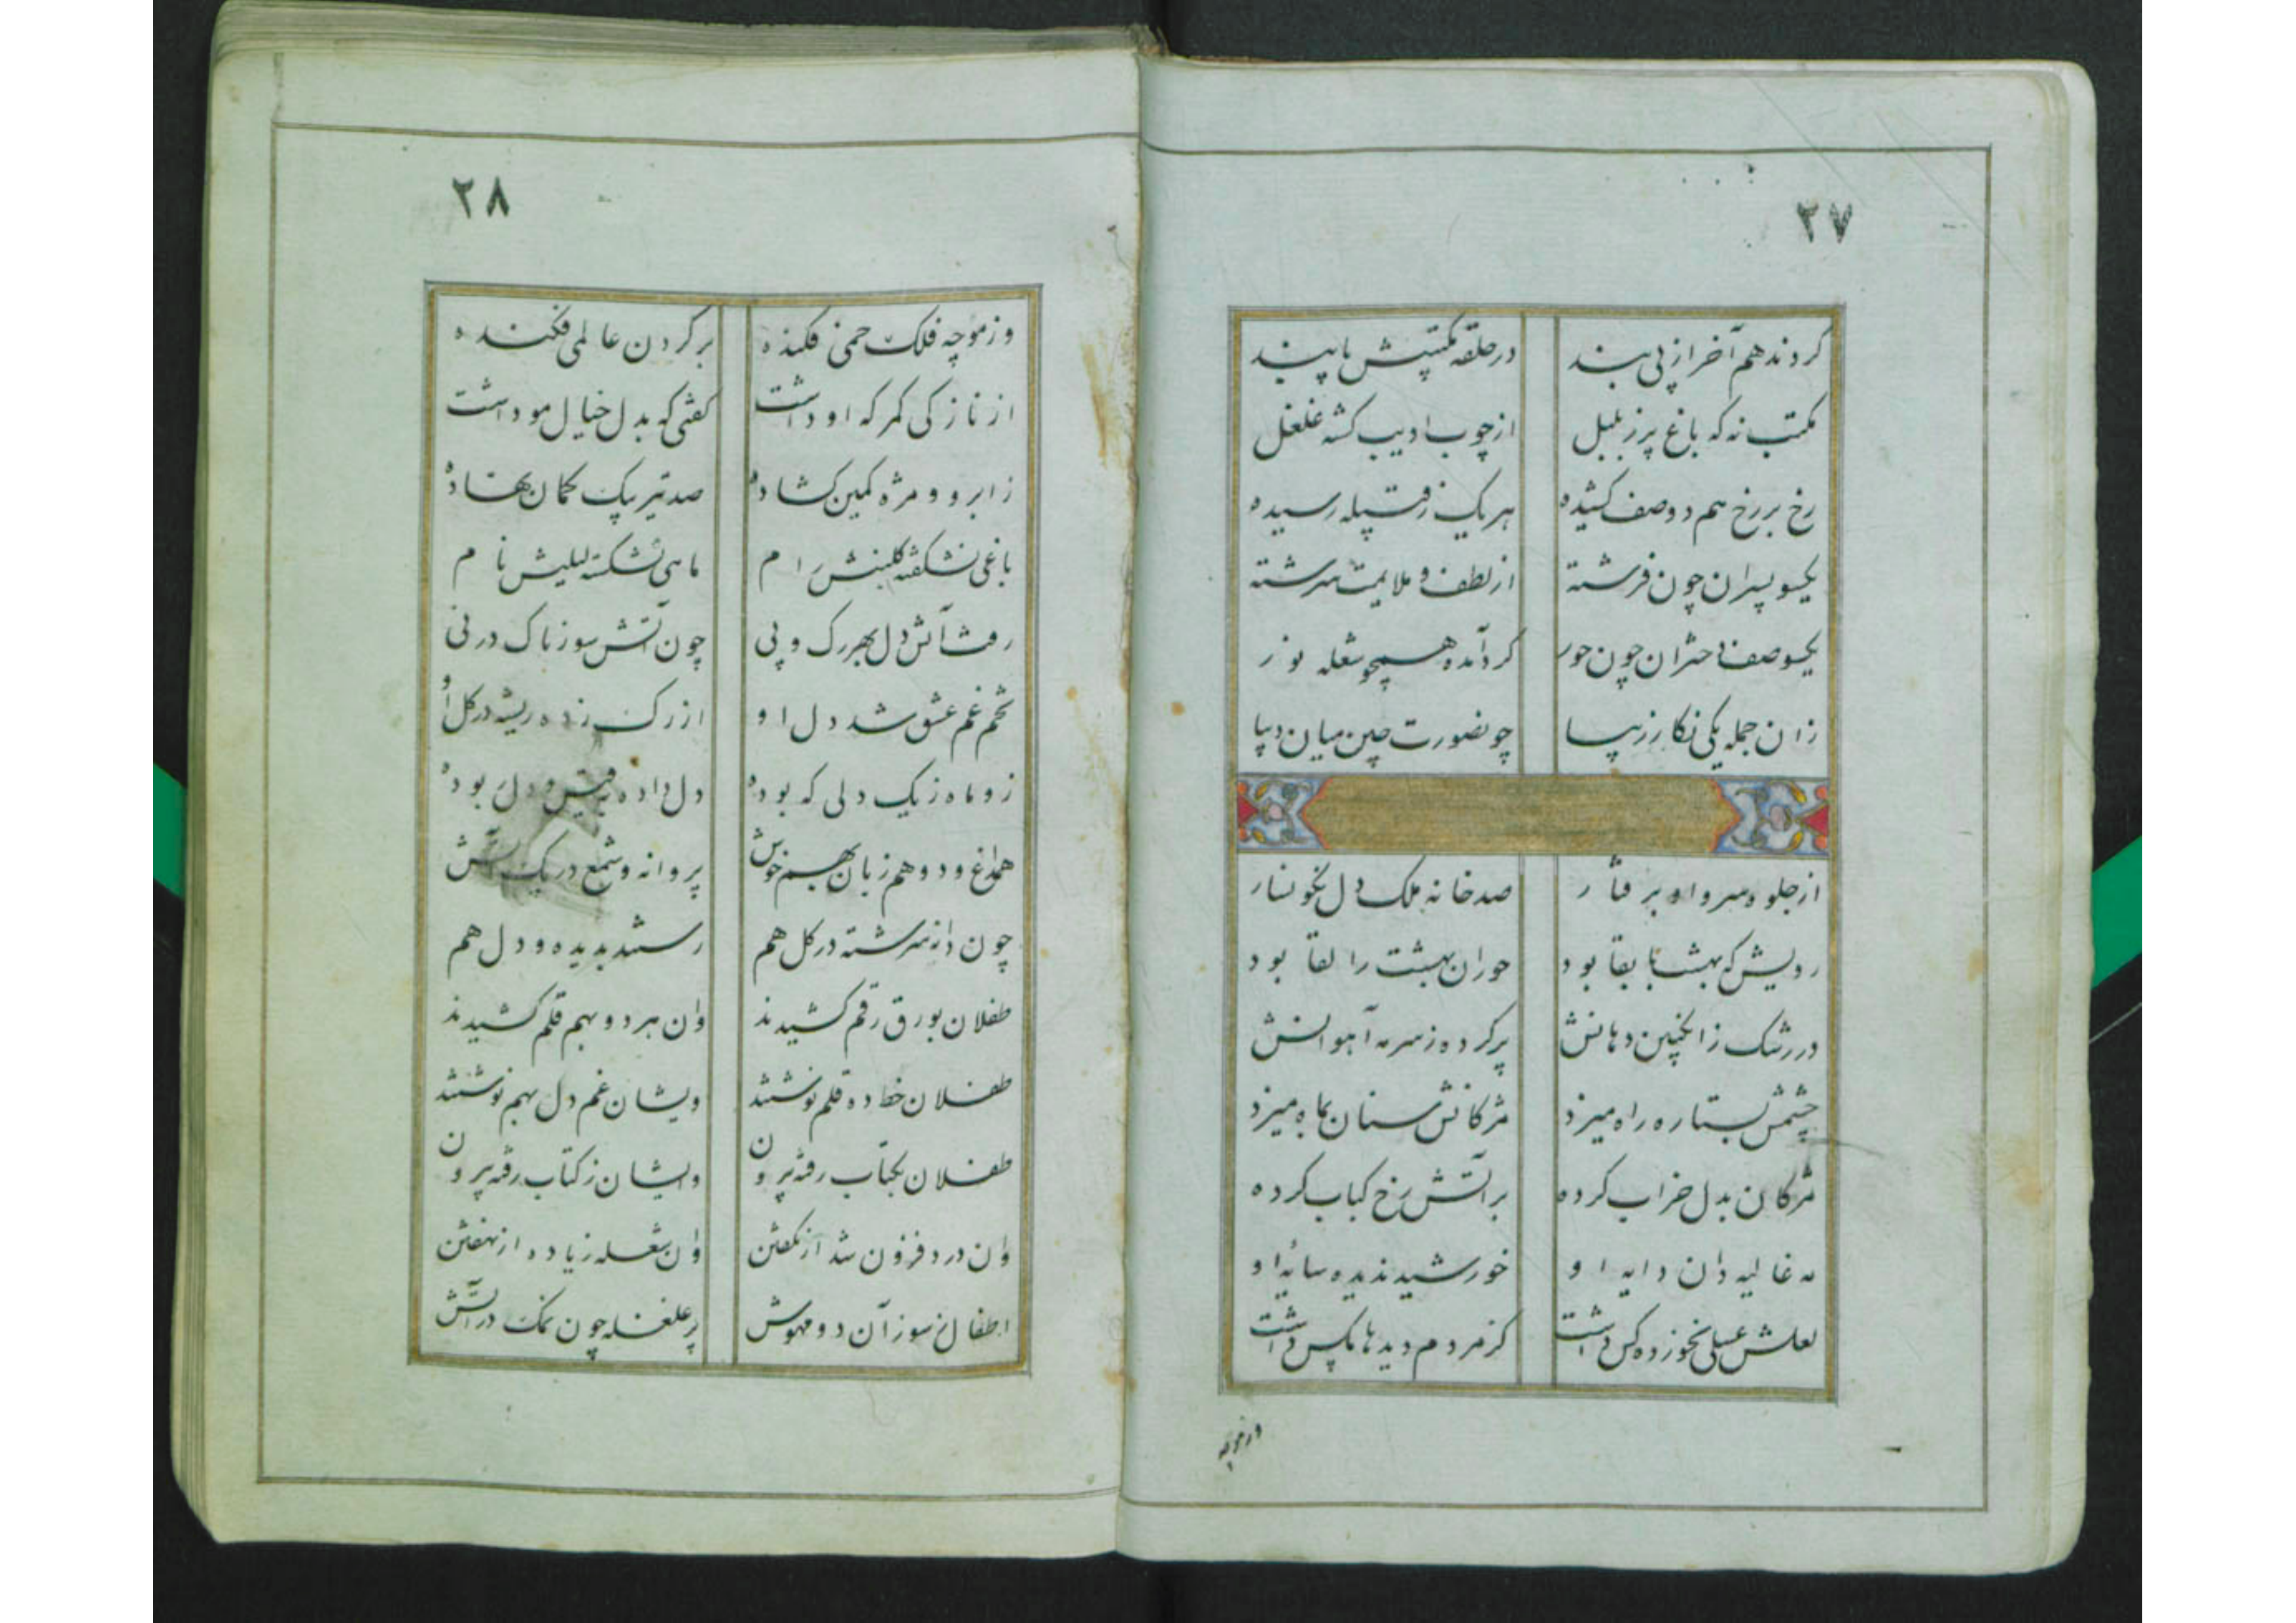 ۲۷
کردند هم آخر از پی پند در حلقه مکتبیش پابند
مکتب نه که باغ پر ز بلبل از چوب ادیب گشته غلغل
رخ بر رخ هم دو صف کشیده هر یک ز قبیله رسیده
یکسو پسران چون فرشته از لطف و ملایمت سرشته
یکسو صف دختران چون حور گرد آمده همچو شعله نور
زان جمله یکی نگار زیبا چو نصورت چین میان دیبا
از جلوه سرو او برفتار صد خانه ملک دل نگونسار
رویش که بهشت با بقا بود حوران بهشت را لقا بود
در رشک ز انگبین دهانش پر کرده ز سرمه آهوانش
چشمش بستاره راه میزد مژگانش سنان بماه میزد
مژگان بدل خراب کرده بر آتش رخ کباب کرده
مه غالیه دان دایه او خورشید ندیده سایه او
لعلش عسلی نخورده کس داشت کز مردم دیدها مگس داشت
وز مو چه
۲۸
وز مو چه فلک خمی فکنده بر گردن عالمی فکنده
از نازکی کمر که او داشت گفتی که بدل خیال مو داشت
ز ابرو و مژه کمین گشاده صد تیر بیک کمان نهاده
باغی نشکفته گلبنش رام ماهی نشکسته لیلیش نام
رفت آتش دل بهر رگ و پی چون آتش سوزناک در نی
تخم غم عشق شد دل او از رگ زده ریشه در گل او
زو ماه ز یک دلی که بوده دل داده بقیس و دل ربوده
همداغ و دو هم زبان بهم خوش پروانه و شمع در یک آتش
چون دانه سرشته در گل هم رستند بدیده و دل هم
طفلان بورق رقم کشیدند وان هر دو بهم قلم کشیدند
طفلان خط ده قلم نوشتند ویشان غم دل بهم نوشتند
طفلان بکتاب رفته بیرون وایشان ز کتاب رفته بیرون
وان درد فزون شد از نگفتن وان شعله زیاده از نهفتن
اطفال ز سوز آن دو مهوش پر غلغله چون نمک در آتش